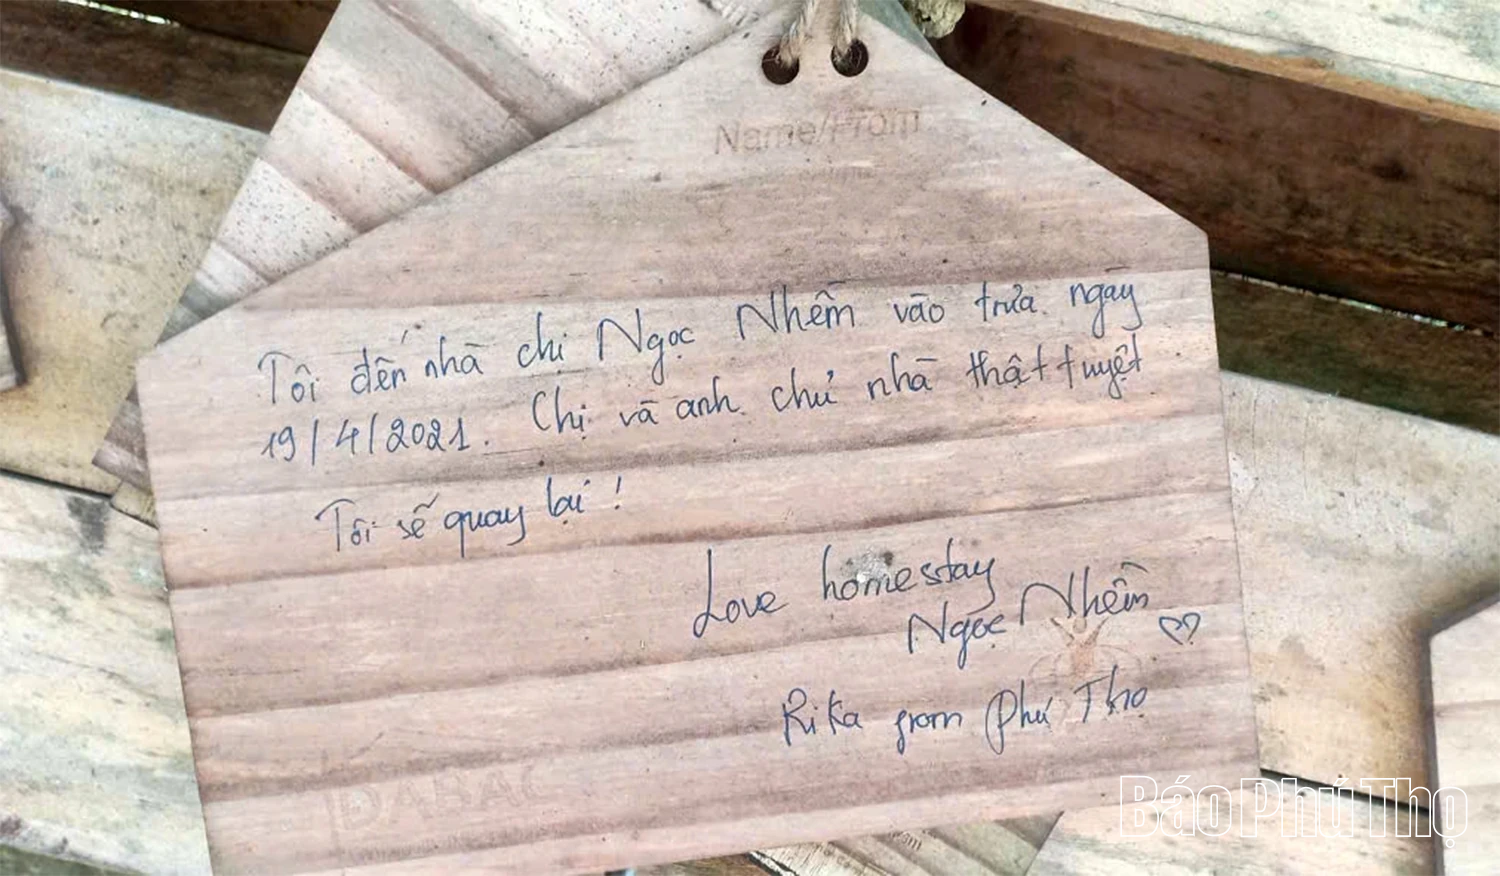 Name/From
Tôi đến nhà chị Ngọc Nhềm vào trưa ngày
19/4/2021. Chị và anh chủ nhà thật tuyệt
Tôi sẽ quay lại !
Love homestay
Ngọc Nhềm ♡
Rika from Phú Thọ
DABAC
Báo Phú Thọ